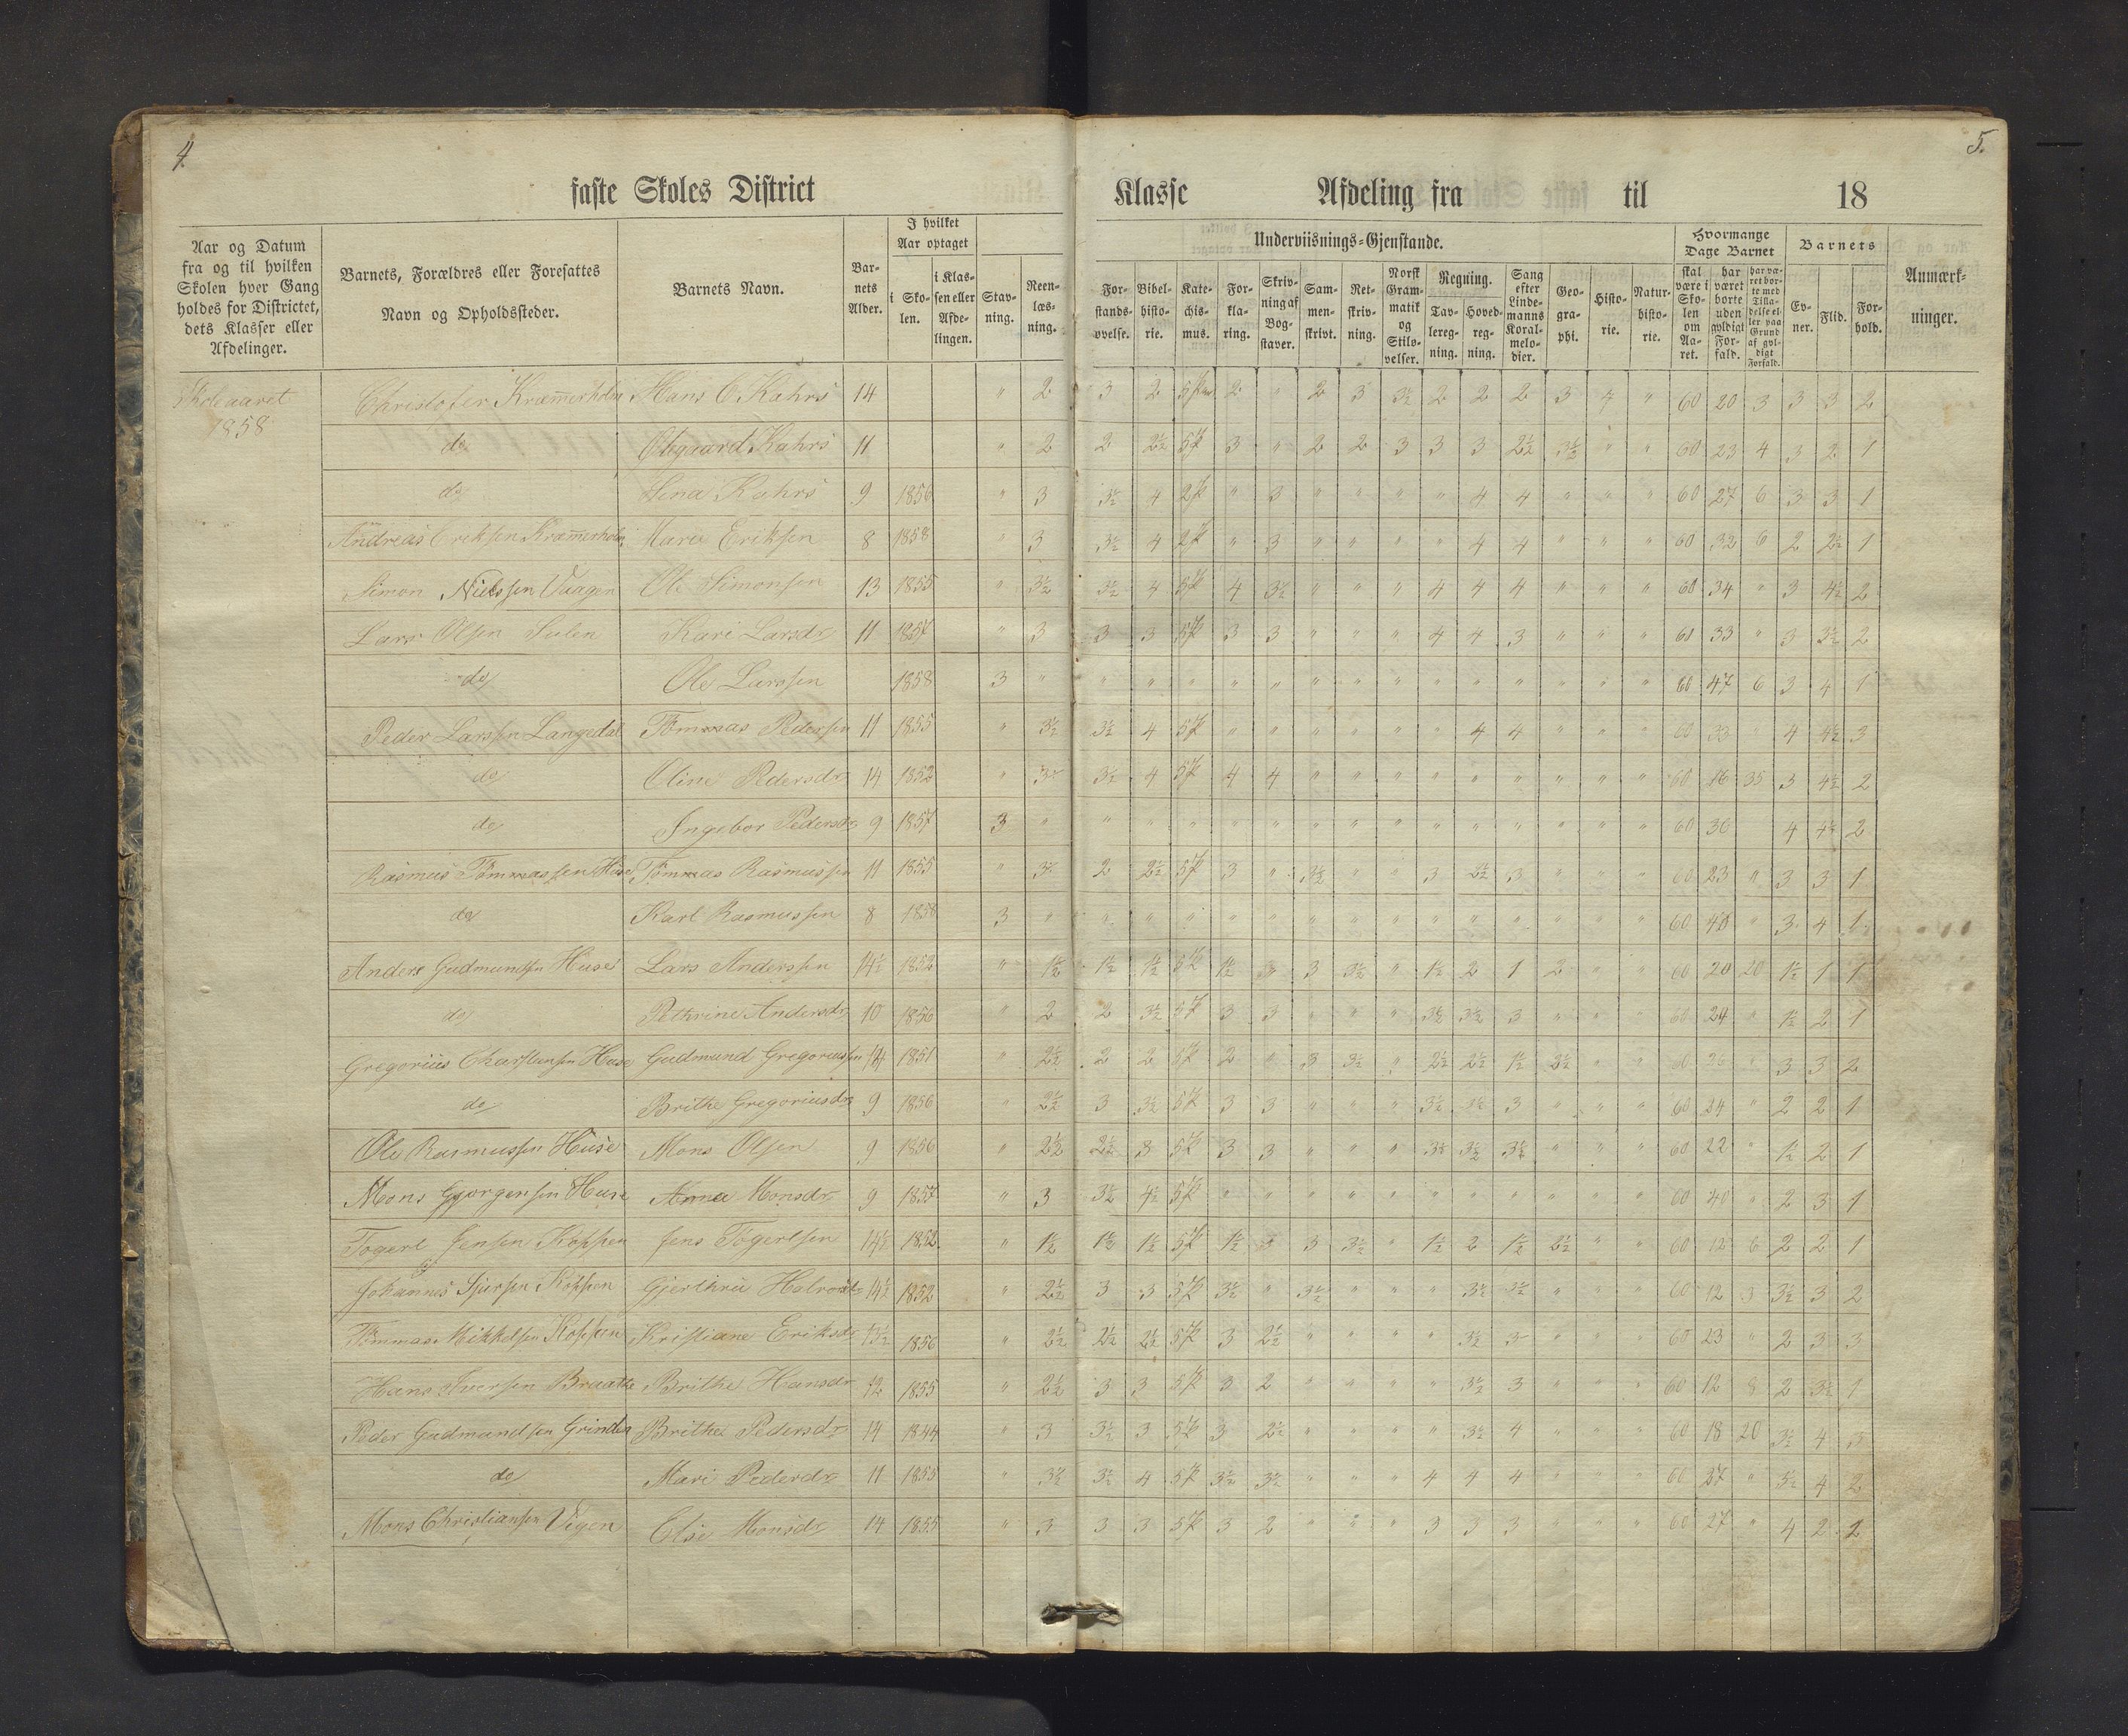 4.
faste Skoles District
Aar og Datum fra og til hvilken Skolen hver Gang holdes for Districtet, dets Klasser eller Afdelinger.
Barnets, Forældres eller Foresattes Navn og Opholdssteder.
Barnets Navn.
Barnets Alder.
I hvilket Aar optaget
i Skolen.
i Klassen eller Afdelingen.
Stavning.
Reenlæsning.
5.
Klasse Afdeling fra til 18
Underviisnings-Gjenstande.
Forstandsøvelse.
Bibelhistorie.
Katechismus.
Forklaring.
Skrivning af Bogstaver.
Sammenskrivt.
Retskrivning.
Norsk Grammatik og Stiløvelser.
Regning.
Tavleregning.
Hovedregning.
Sang efter Lindemanns Koralmelodier.
Geographi.
Historie.
Naturhistorie.
Hvormange Dage Barnet
skal være i Skolen om Aaret.
har været borte uden gyldigt Forfald.
har været borte med Tilladelse eller paa Grund af gyldigt Forfald.
Barnets
Evner.
Flid.
Forhold.
Anmærkninger.
Skoleaaret 1858
Christofer Kræmerholm Hans C. Kahrs 14 " 2 3 2 2 " 2 3 3½ 2 2 2 3 4 " 60 20 3 3 3 2
do Kahrs 11 " 2 2 2½ 5 P 3 " 2 2 3 3 3 2½ 3½ " " 60 23 4 3 2 1
do Lena Kahrs 9 1856 " 3 3½ 4 2 P " 3 " " " " 4 4 " " " 60 27 6 3 3 1
Andreas Eriksen Kræmerholm Maria Eriksen 8 1858 " 3 3½ 4 2 P " 3 " " " " 4 4 " " " 60 32 6 2 2½ 1
Simon Nielssen Vaagen Ole Simonsen 13 1855 " 3½ 3½ 4 5 P 4 3½ " " " 4 4 4 " " " 60 34 " 3 4½ 2
Lars Olsen Sulen Kari Larsdr 11 1857 " 3 3 3 5 P 3 3 " " " 4 4 3 " " " 60 33 " 3 3½ 2
do Ole Larssen 1858 3 " " " " " " " " " " " " " " " 60 47 6 3 4 1
Peder Larsen Langedal Tommas Pedersen 11 1855 " 3½ 3½ 4 5 P " " " " " " 4 4 " " " 60 33 " 4 4½ 3
do Oline Pedersdr 14 1852 " 3½ 3½ 4 5 P 4 4 " " " " " " " " " 60 16 35 3 4½ 2
do Ingebor Pedersdr 9 1857 3 " " " " " " " " " " " " " " " 60 36 4 4½ 2
Rasmus Tommassen Huse Tommas Rasmussen 11 1855 " 3½ 2 2½ 5 P 3 " 3½ " " 3 2½ 3 " " " 60 23 " 3 3 1
do Karl Rasmussen 8 1858 3 " " " " " " " " " " " " " " " 60 40 " 3 4 1½
Anders Gudmundsen Huse Lars Anderssen 14½ 1852 " 1½ 1½ 1½ 5 P 1½ " 3 3½ " 1½ 2 1 2 " " 60 20 20 1½ 1 1
do Pethrine Andersdr 10 1856 " 2 2 3½ 5 P 3 3 " " " 3½ 3½ 3 " " " 60 24 " 1½ 2 1
Gregorius Huse Gudmund Gregoriussen 14 1851 " 2½ 2 2 5 P 2 " 3 3½ " 2½ 2½ 1½ 3½ " " 3 3 2
do Brithe Gregoriusdr 9 1856 " 2½ 3 3½ 5 P 3 3 " " " 3½ 3½ 3 " " " 60 24 " 2 2 1
Ole Rasmussen Huse Mons Olsen 9 1856 " 2½ 2½ 3 5 P 3 3 " " " 3½ 3½ 3½ " " " 60 22 " 1½ 2 1
Mons Gjørgensen Huse Anna Monsdr 9 1857 " 3 3½ 4½ 5 P " " " " " " " " " " " 60 40 " 2 3 1
Togert Jensen Koppen Jens Togertsen 14½ 1852 " 1½ 1½ 1½ 5 P 1½ " 3 3½ " 1½ 2 1½ 2½ " " 60 12 6 2 2 1
Johannes Koppen Gjerthrue 14½ 1852 " 2½ 3 3 5 P 3½ " 3½ " " " 3½ 3½ " " " 60 12 3 3½ 3 2
Tommas Mikkelsen Koppen Kristiane Eriksdr 13½ 1856 " 2½ 2½ 2½ 5 P 3 2½ " " " " 3½ 3 " " " 60 23 " 2 3 3
Hans Iversen Braatte Brithe Hansdr 12 1855 " 2½ 3 3 5 P 3 2 " " " " 3½ 3 " " " 60 12 8 2 3½ 1
Peder Gudmundsen Grinden Brithe Pedersdr 14 1844 " 3 3½ 3 5 P 3 2½ " " " " 3½ 4 " " " 60 18 20 3½ 4 3
do Mari Pederdr 11 1855 " 3½ 3½ 4 5 P 3½ 3½ " " " 4 4 4 " " " 60 37 " 3½ 4 2
Mons Christiansen Vegen Else Monsdr 14 1855 " 3 3 3 5 P 3 2 " " " 3 3 3 " " " 60 27 " 4 2 2